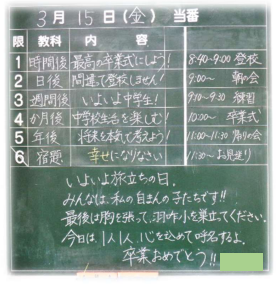 3月15日(金) 当番
限 教科 内容
1 時間後 最高の卒業式にしよう! 8:40~9:00 登校
2 日後 間違て登校しません! 9:00~ 朝の会
3 週間後 いよいよ中学生! 9:10~9:30 練習
4 か月後 中学校生活を楽しむ! 10:00~ 卒業式
5 年後 将来を本気で考えよう! 11:00~11:30 帰りの会
6 宿題 幸せになりなさい 11:30~ お見送り
いよいよ旅立ちの日。
みんなは、私の自まんの子たちです!!
最後は胸を張って、羽咋小を巣立てください。
今日は、1人1人、心を込めて呼名するよ。
卒業おめでとう!!